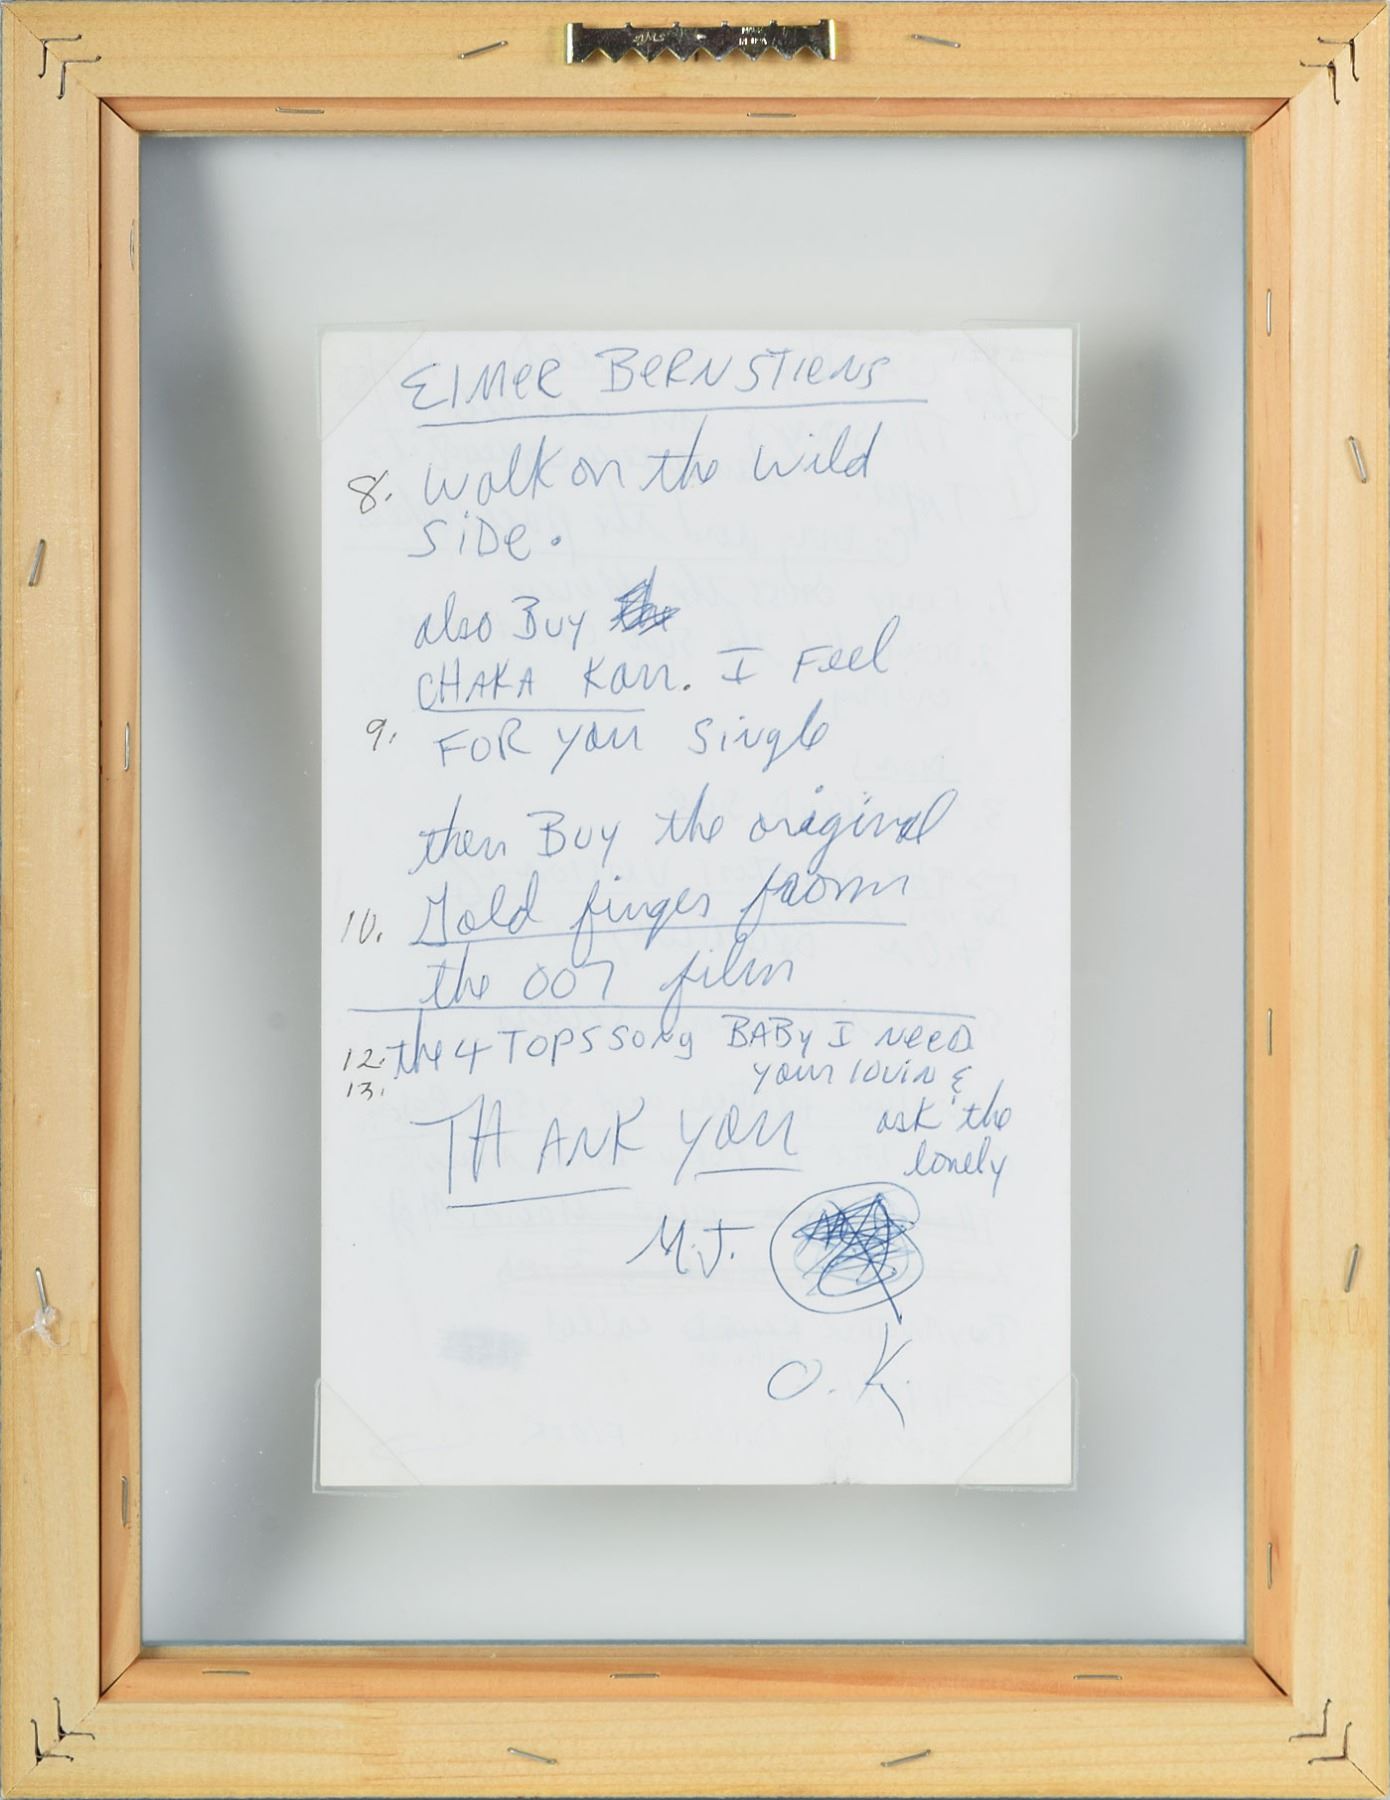 ElMeR BeRNSTIeNS
8. walk on the wild
SiDe.
also Buy
CHAKA Kan. I Feel
9. FOR you single
then Buy the original
10. Gold finger from
the 007 film
12. the 4 TOPS song BABy I NeeD
13. your lovin &
ask the
lonely
THANK you
M.J.
O.K.